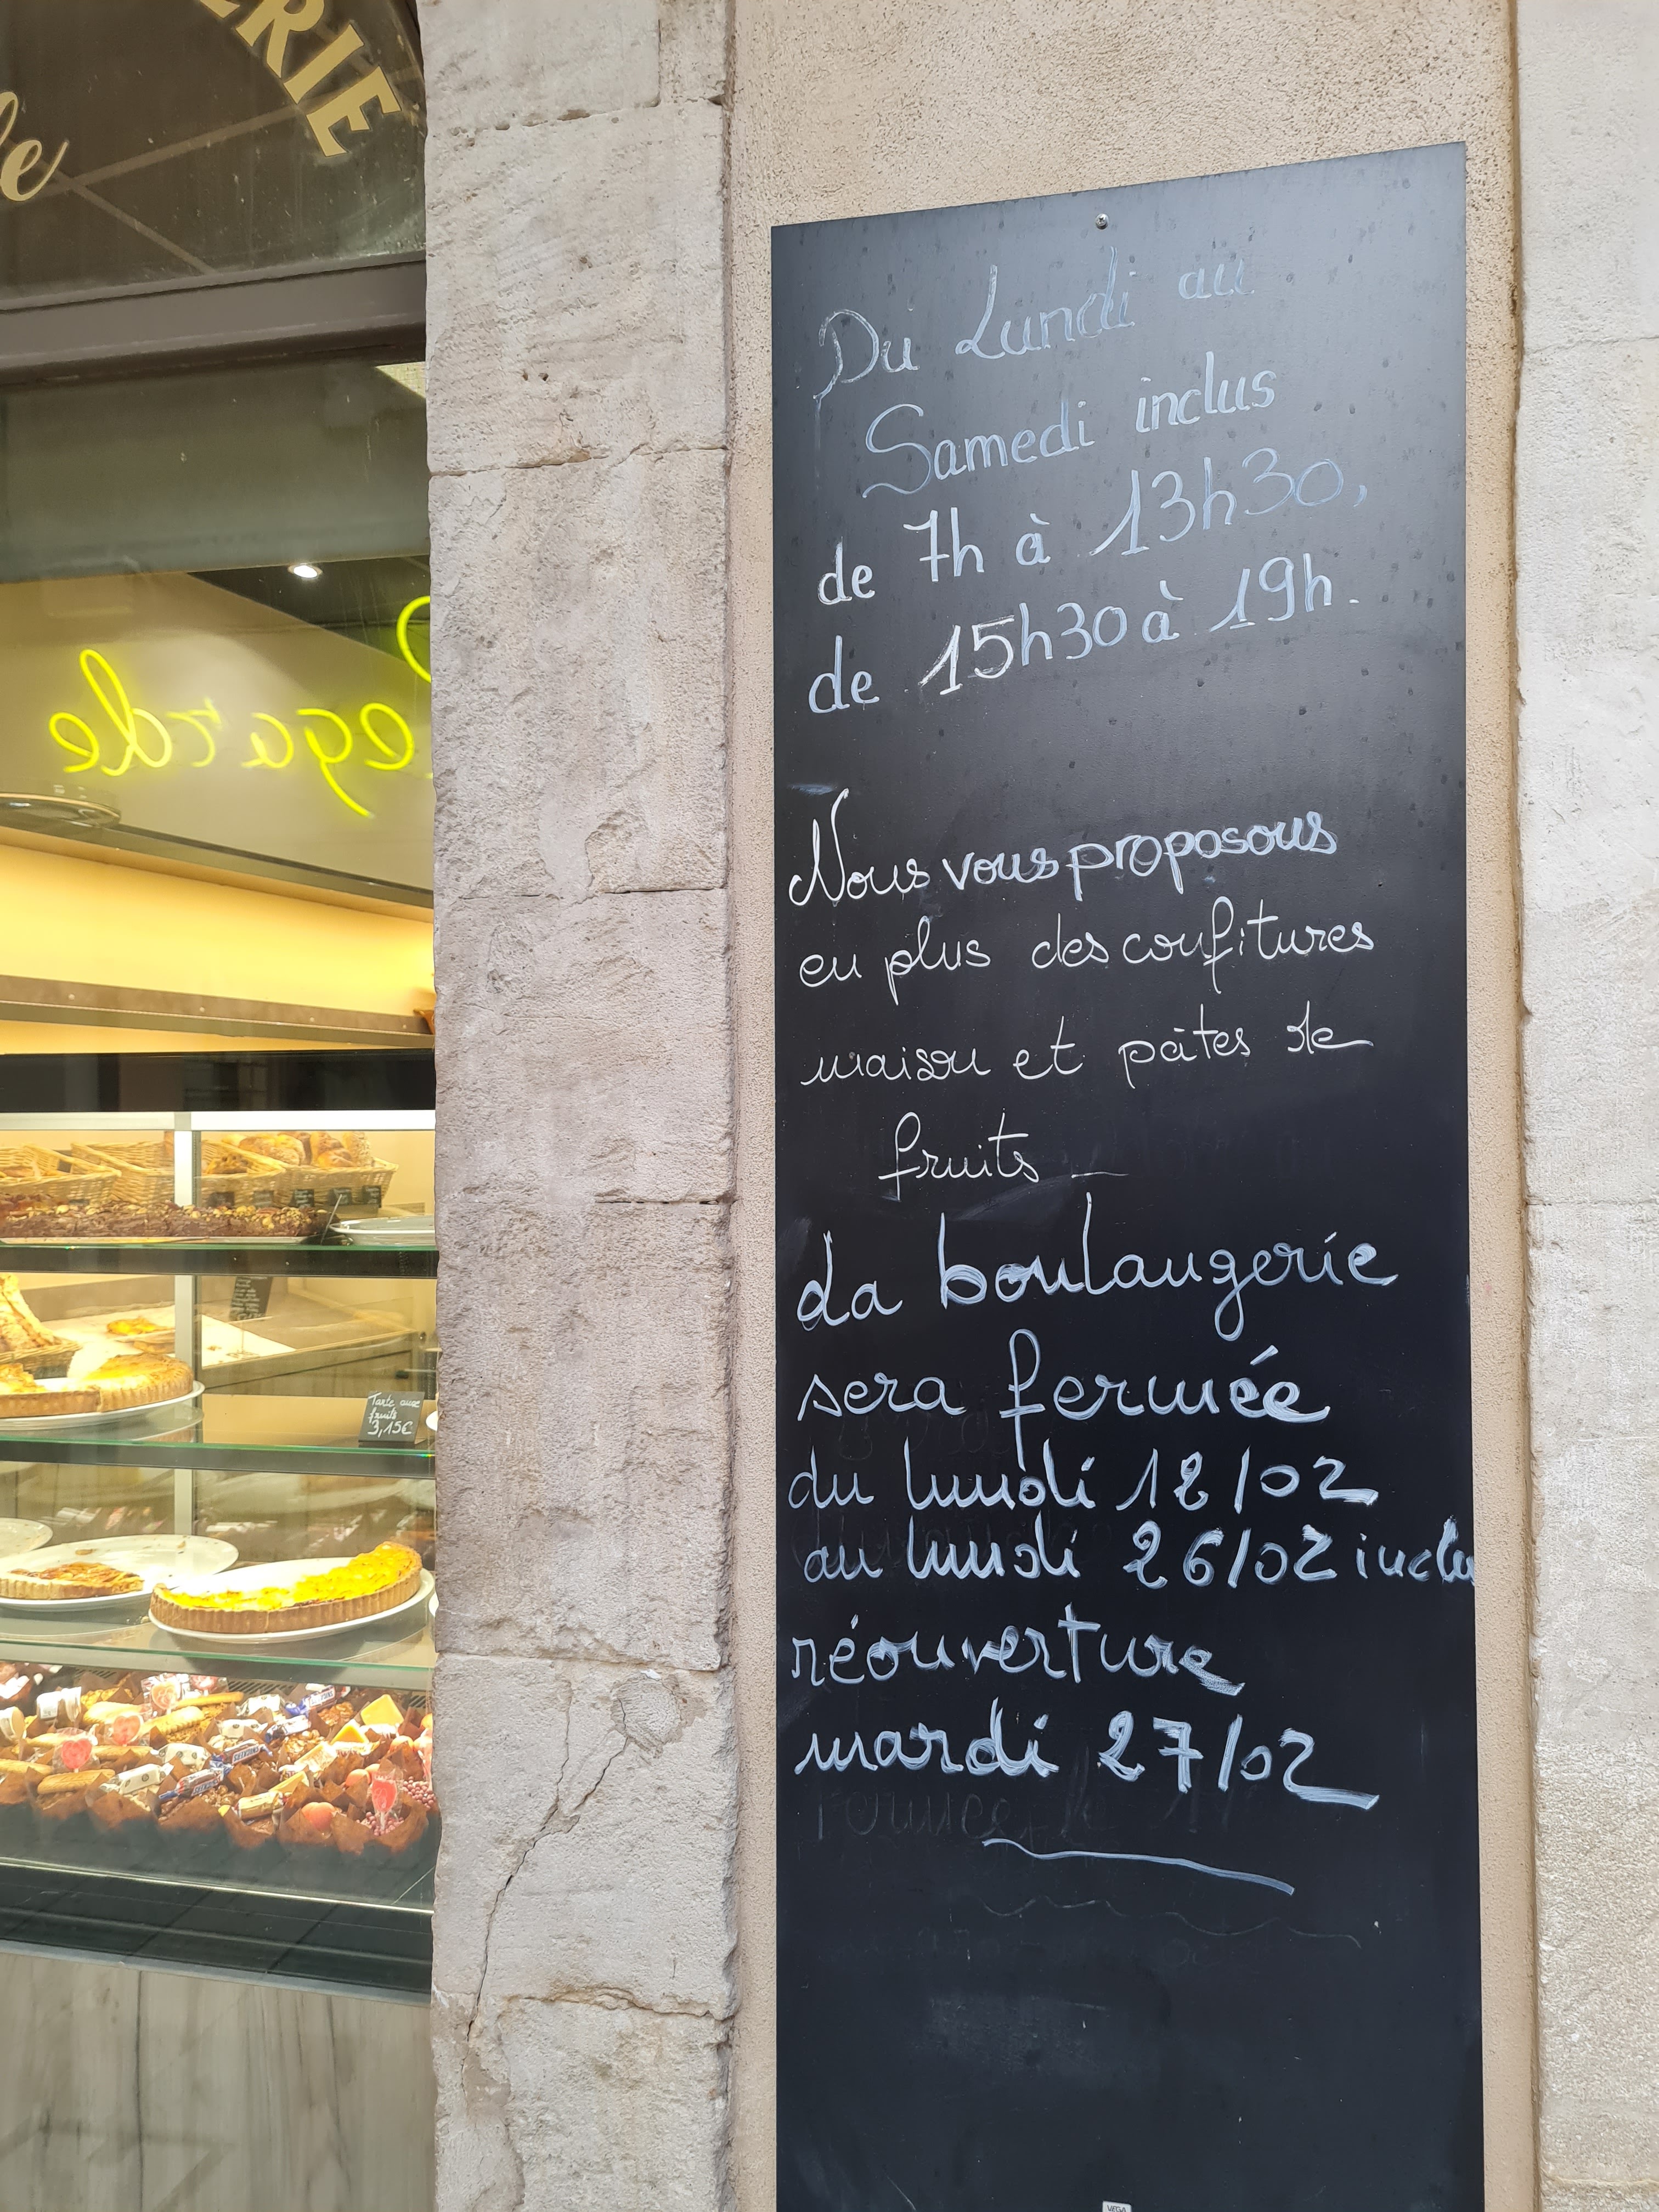 ERIE
le
egarde
Tarte aux
fruits
3,15€
Du Lundi au
Samedi inclus
de 7h à 13h30,
de 15h30 à 19h.
Nous vous proposons
en plus des confitures
maison et pâtes de
fruits
La boulangerie
sera fermée
du lundi 12/02
au lundi 26/02 inclu
réouverture
mardi 27/02